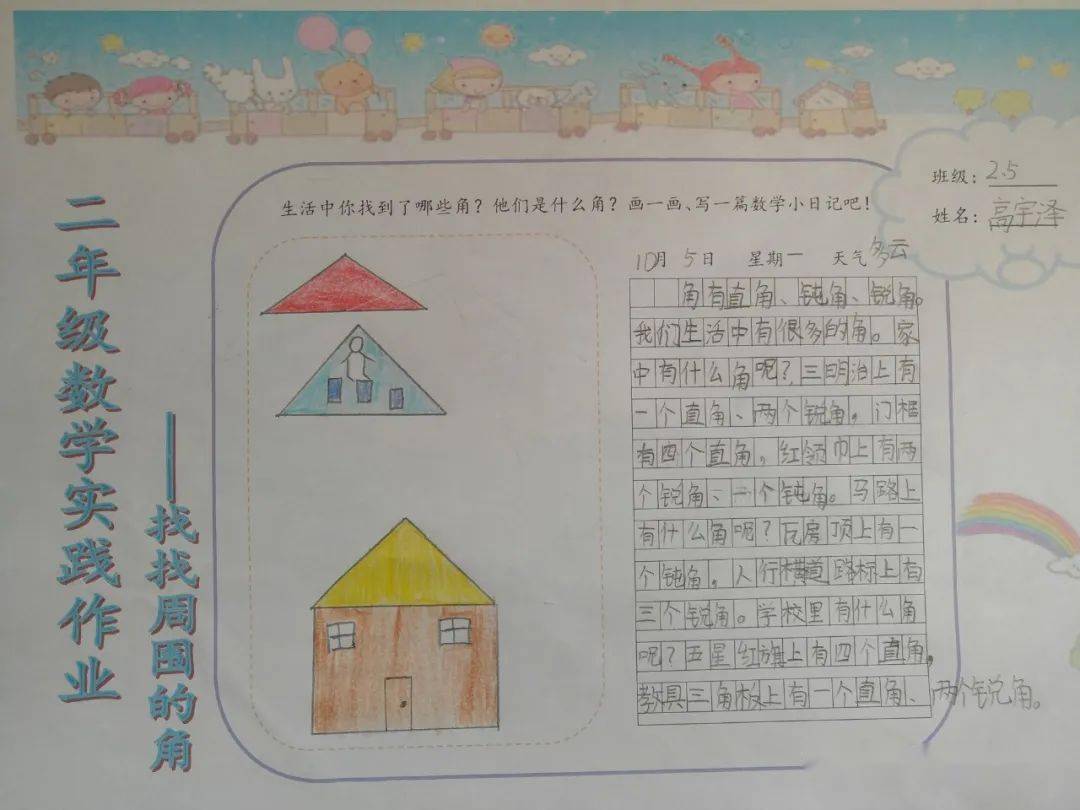 二年级数学实践作业
——找找周围的角
班级：2.5
姓名：高宇泽
生活中你找到了哪些角？他们是什么角？画一画、写一篇数学小日记吧！
10月 5日 星期一 天气多云
角有直角、钝角、锐角。
我们生活中有很多的角。家
中有什么角呢？三明治上有
一个直角、两个锐角。门框
有四个直角，红领巾上有两
个锐角、一个钝角。马路上
有什么角呢？瓦房顶上有一
个钝角，人行横道路标上有
三个锐角。学校里有什么角
呢？五星红旗上有四个直角，
教具三角板上有一个直角、两个锐角。